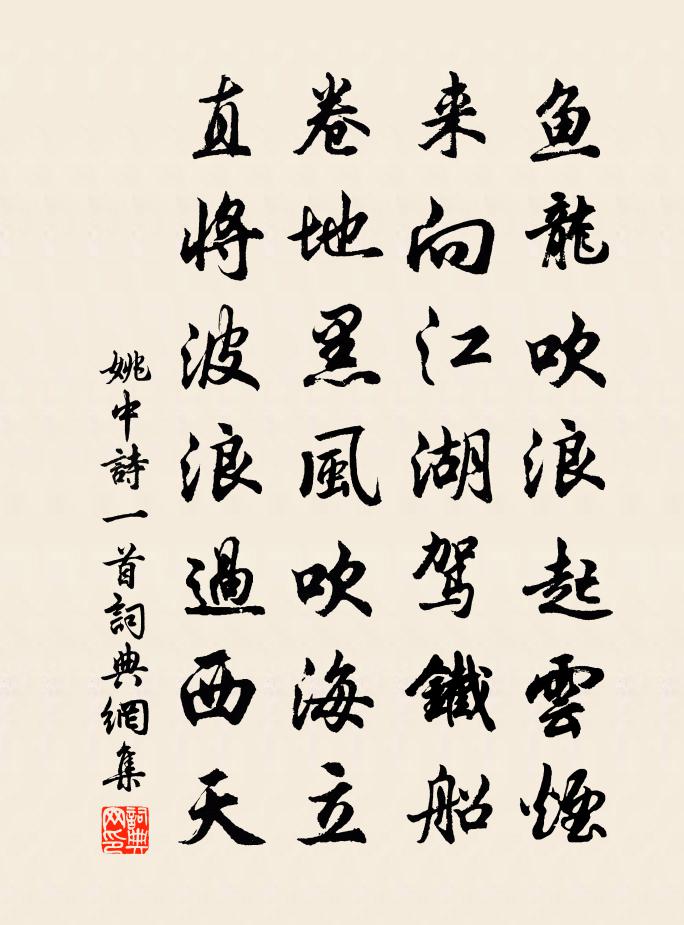 鱼龍吹浪起雲煙
来向江湖駕鐵船
卷地黑風吹海立
直将波浪過西天
姚中詩一首詞典網集
詞典网印